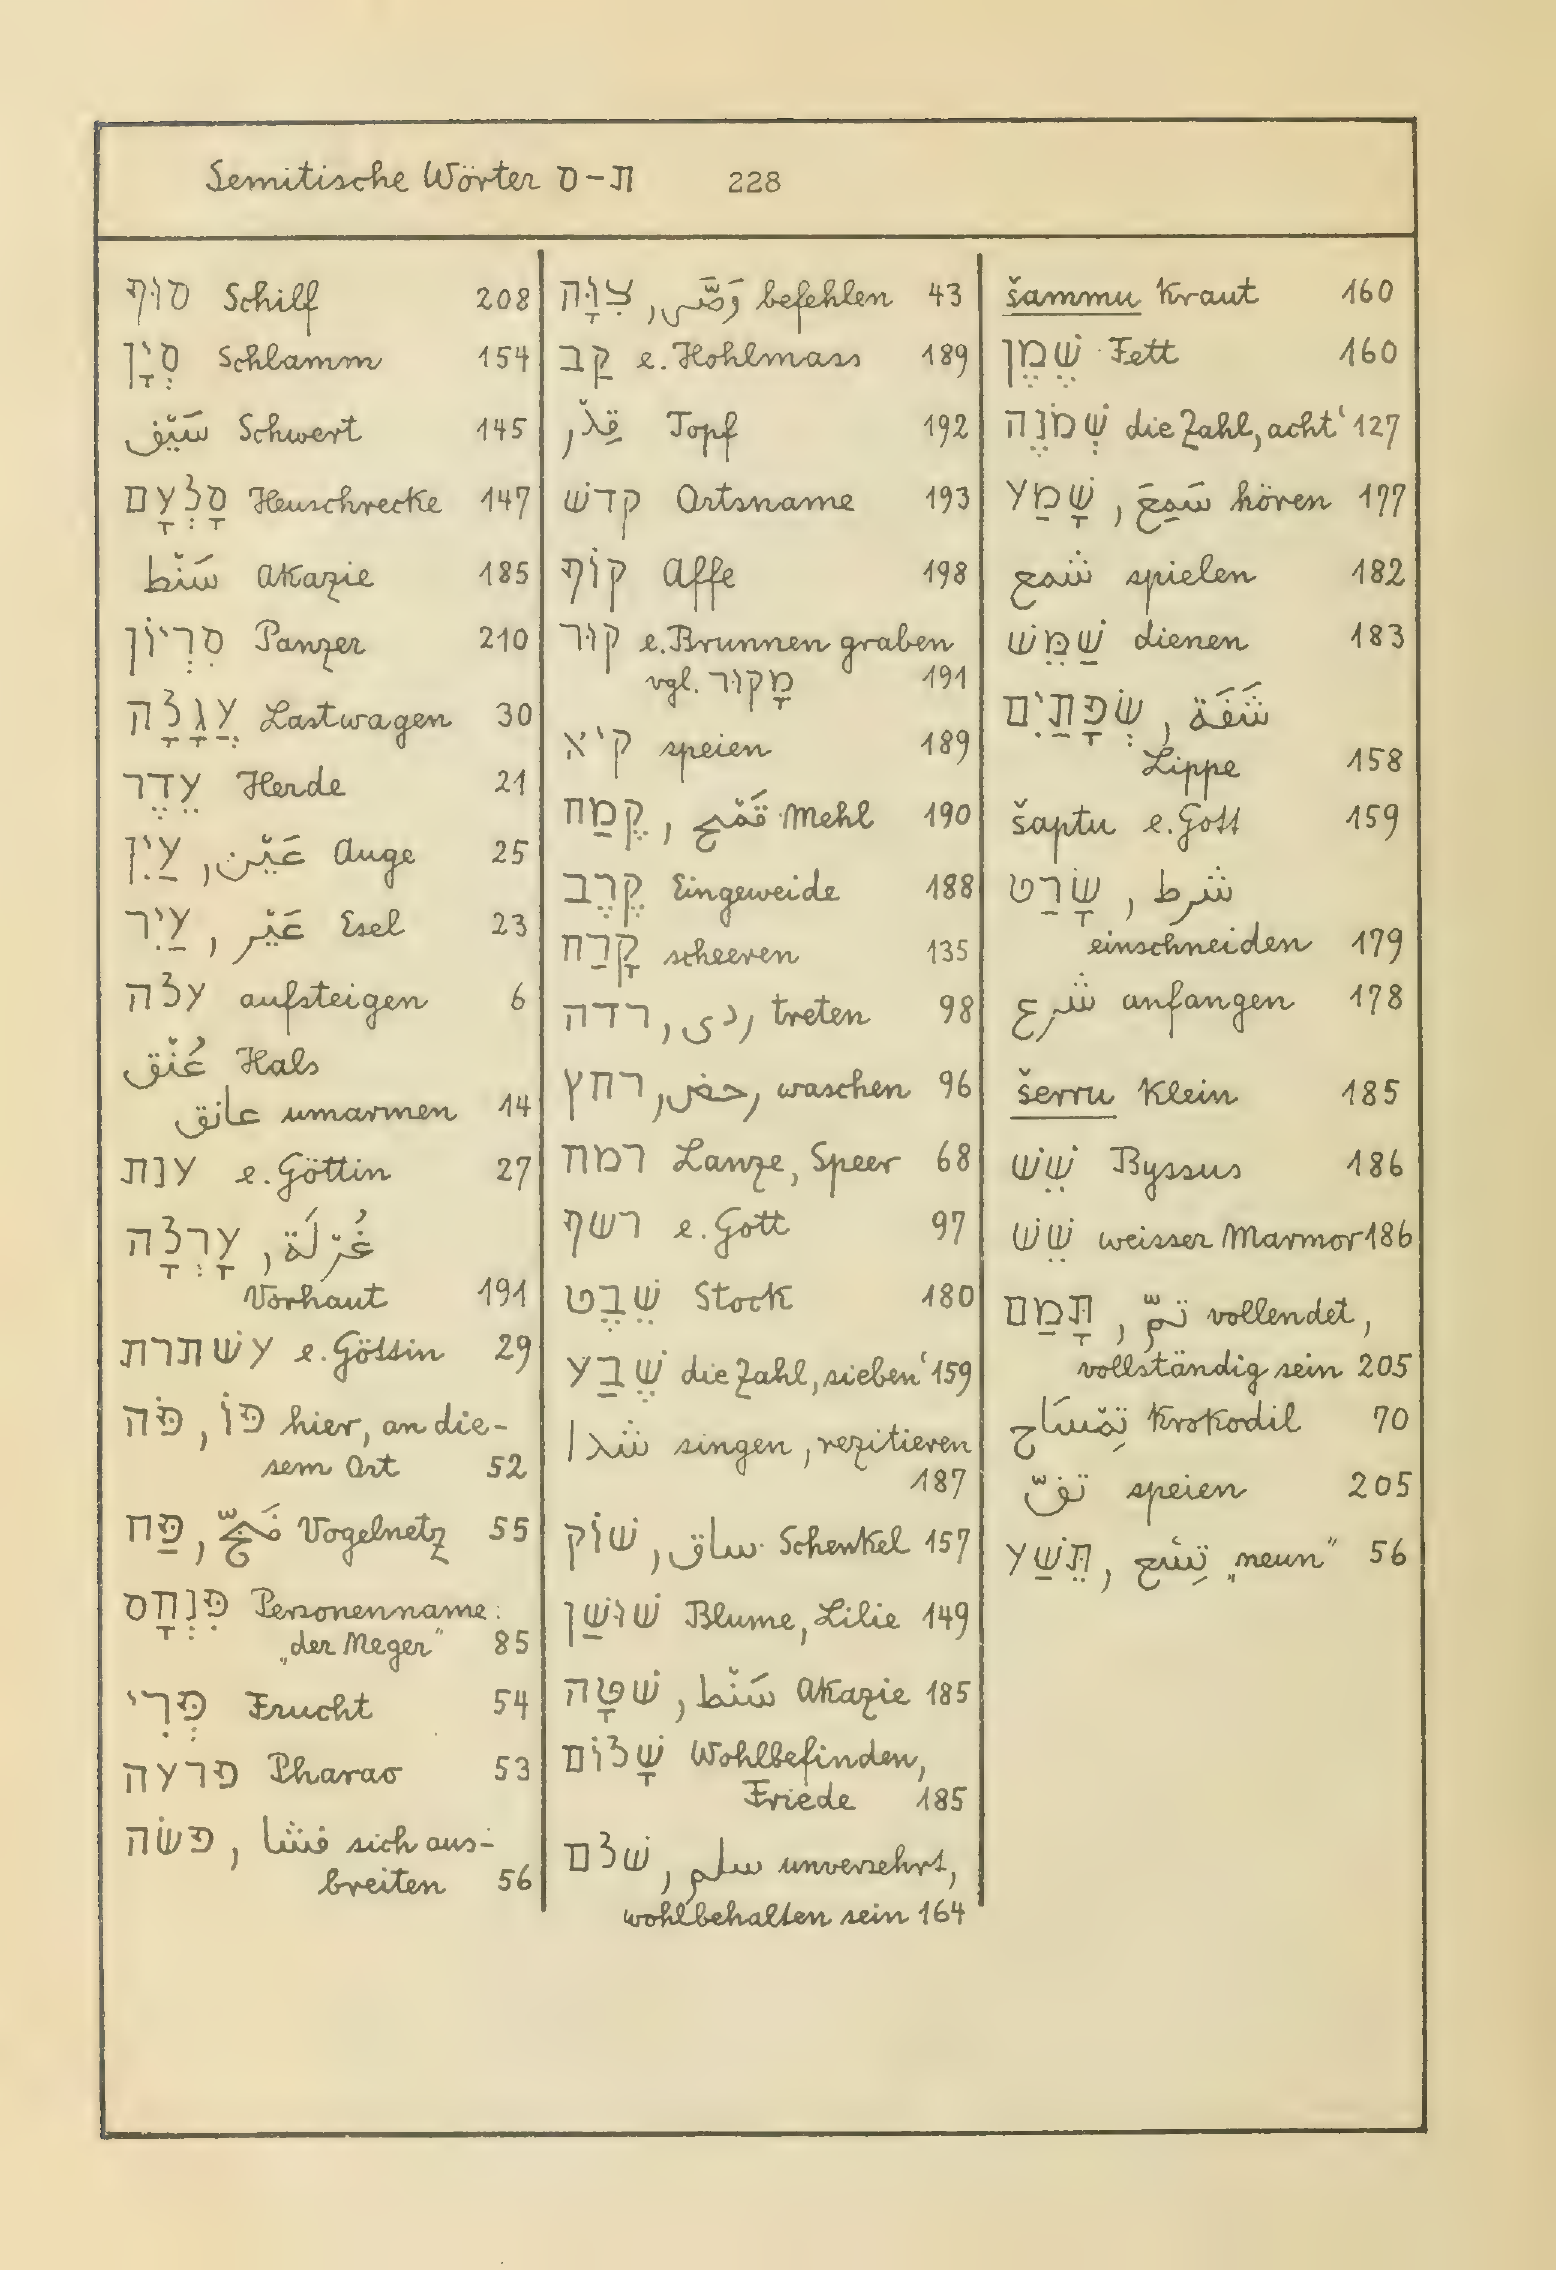 Semitische Wörter ס - ת 228
סוּף Schilf 208
סְיָן Schlamm 154
سَيْف Schwert 145
סָלְעָם Heuschrecke 147
سَنْط Akazie 185
סִרְיוֹן Panzer 210
עֲגָלָה Lastwagen 30
עֵדֶר Herde 21
עַיִן, عَيْن Auge 25
עַיִר, عَيْر Esel 23
עלה aufsteigen 6
عُنْق Hals
عانق umarmen 14
ענת e. Göttin 27
עָרְלָה, غُرْلَة
Vorhaut 191
עשתרת e. Göttin 29
פֹּה, פּוֹ hier, an die-
sem Ort 52
פַּח, فَخّ Vogelnetz 55
פִּנְחָס Personenname:
„der Neger" 85
פְּרִי Frucht 54
פרעה Pharao 53
פשׂה, فشا sich aus-
breiten 56
צִוָּה, وَصَّى befehlen 43
קַב e. Hohlmass 189
قِدْر Topf 192
קדש Ortsname 193
קוֹף Affe 198
קוּר e. Brunnen graben
vgl. מָקוֹר 191
קיא speien 189
קֶמַח, قَمْح Mehl 190
קֶרֶב Eingeweide 188
קָרַח scheeren 135
רדה, ردى treten 98
רחץ, رحض waschen 96
רמח Lanze, Speer 68
רשף e. Gott 97
שֵׁבֶט Stock 180
שֶׁבַע die Zahl ‚sieben' 159
شدا singen, rezitieren
187
שׁוֹק, ساق Schenkel 157
שׁוּשַׁן Blume, Lilie 149
שׁטָּה, سَنْط Akazie 185
שָׁלוֹם Wohlbefinden,
Friede 185
שׁלם, سلم unversehrt,
wohlbehalten sein 164
šammu Kraut 160
שֶׁמֶן Fett 160
שְׁמֹנֶה die Zahl ‚acht' 127
שָׁמַע, سَمِعَ hören 177
شمع spielen 182
שַׁמֵּשׁ dienen 183
שְׂפָתַיִם, شَفَة
Lippe 158
šaptu e. Gott 159
שָׂרַט, شرط
einschneiden 179
شرع anfangen 178
šerru Klein 185
שֵׁשׁ Byssus 186
שֵׁשׁ weisser Marmor 186
תָּמַם, تمّ vollendet,
vollständig sein 205
تِمْسَاح Krokodil 70
تفّ speien 205
תֵּשַׁע, تِسْع „neun" 56